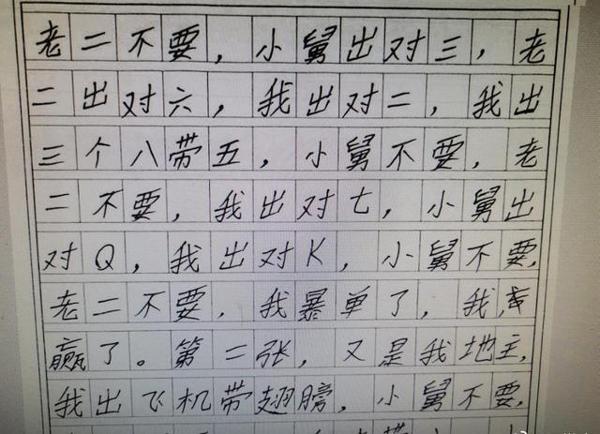 老二不要，小舅出对三，老
二出对六，我出对二，我出
三个八带五，小舅不要，老
二不要，我出对七，小舅出
对Q，我出对K，小舅不要，
老二不要，我暴单了，我
赢了。第二张，又是我地主，
我出飞机带翅膀，小舅不要，